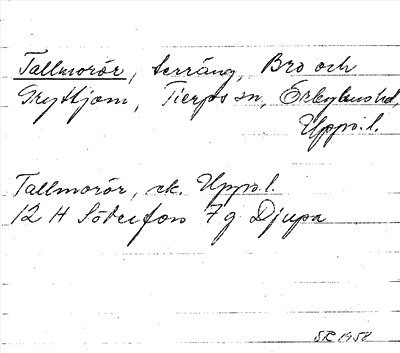 Tallmorör, terräng, Bro och
Gryttjom, Tierps sn, Örbyhus hd,
Upps.l.
Tallmorör, ek. Upps.l.
12 H Söderfors 7 g Djupa
SR 1958